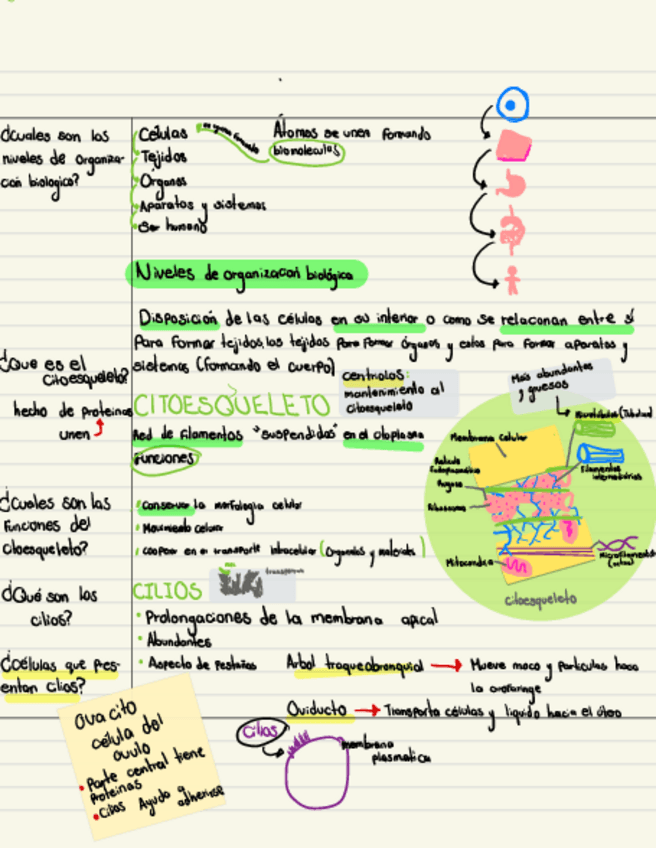 ¿Cuales son los
niveles de organiza-
con biologico?
Células
Tejidos
Órganos
Aparatos y sistemas
Ser humano
Átomos se unen formando
biomoleculas
Niveles de organizacon biológica
Disposición de las células en su interior o como se relaconan entre sí
Para formar tejidos, los tejidos para formar órganos y estos para formar aparatos y
sistemas (formando el cuerpo)
¿Que es el
citoesqueleto?
hecho de proteinas
unen
centriolos:
mantenimiento al
citoesqueleto
CITOESQUELETO
Red de filamentos "suspendidas" en el citoplasma
Funciones
Mas abundantes
y gruesos
Membrana Celular
Filamentos
intermedios
Ribosoma
Mitocondria
citoesqueleto
¿Cuales son las
funciones del
citoesqueleto?
Conservar la morfologia celular
Movimiento celular
cooperar en el transporte intracelular (Organelos y moleculas)
¿Qué son los
cilios?
CILIOS
Prolongaciones de la membrana apical
Abundantes
Aspecto de Pestañas
¿Células que pres-
entan cilios?
Arbol traqueobronquial
Mueve moco y particulas hacia
la orofaringe
Oviducto
Transporta células y liquido hacia el útero
Ovocito
célula del
ovulo
Parte central tiene
Proteinas
Cilios Ayuda a
adherirse
Cilios
membrana
plasmatica